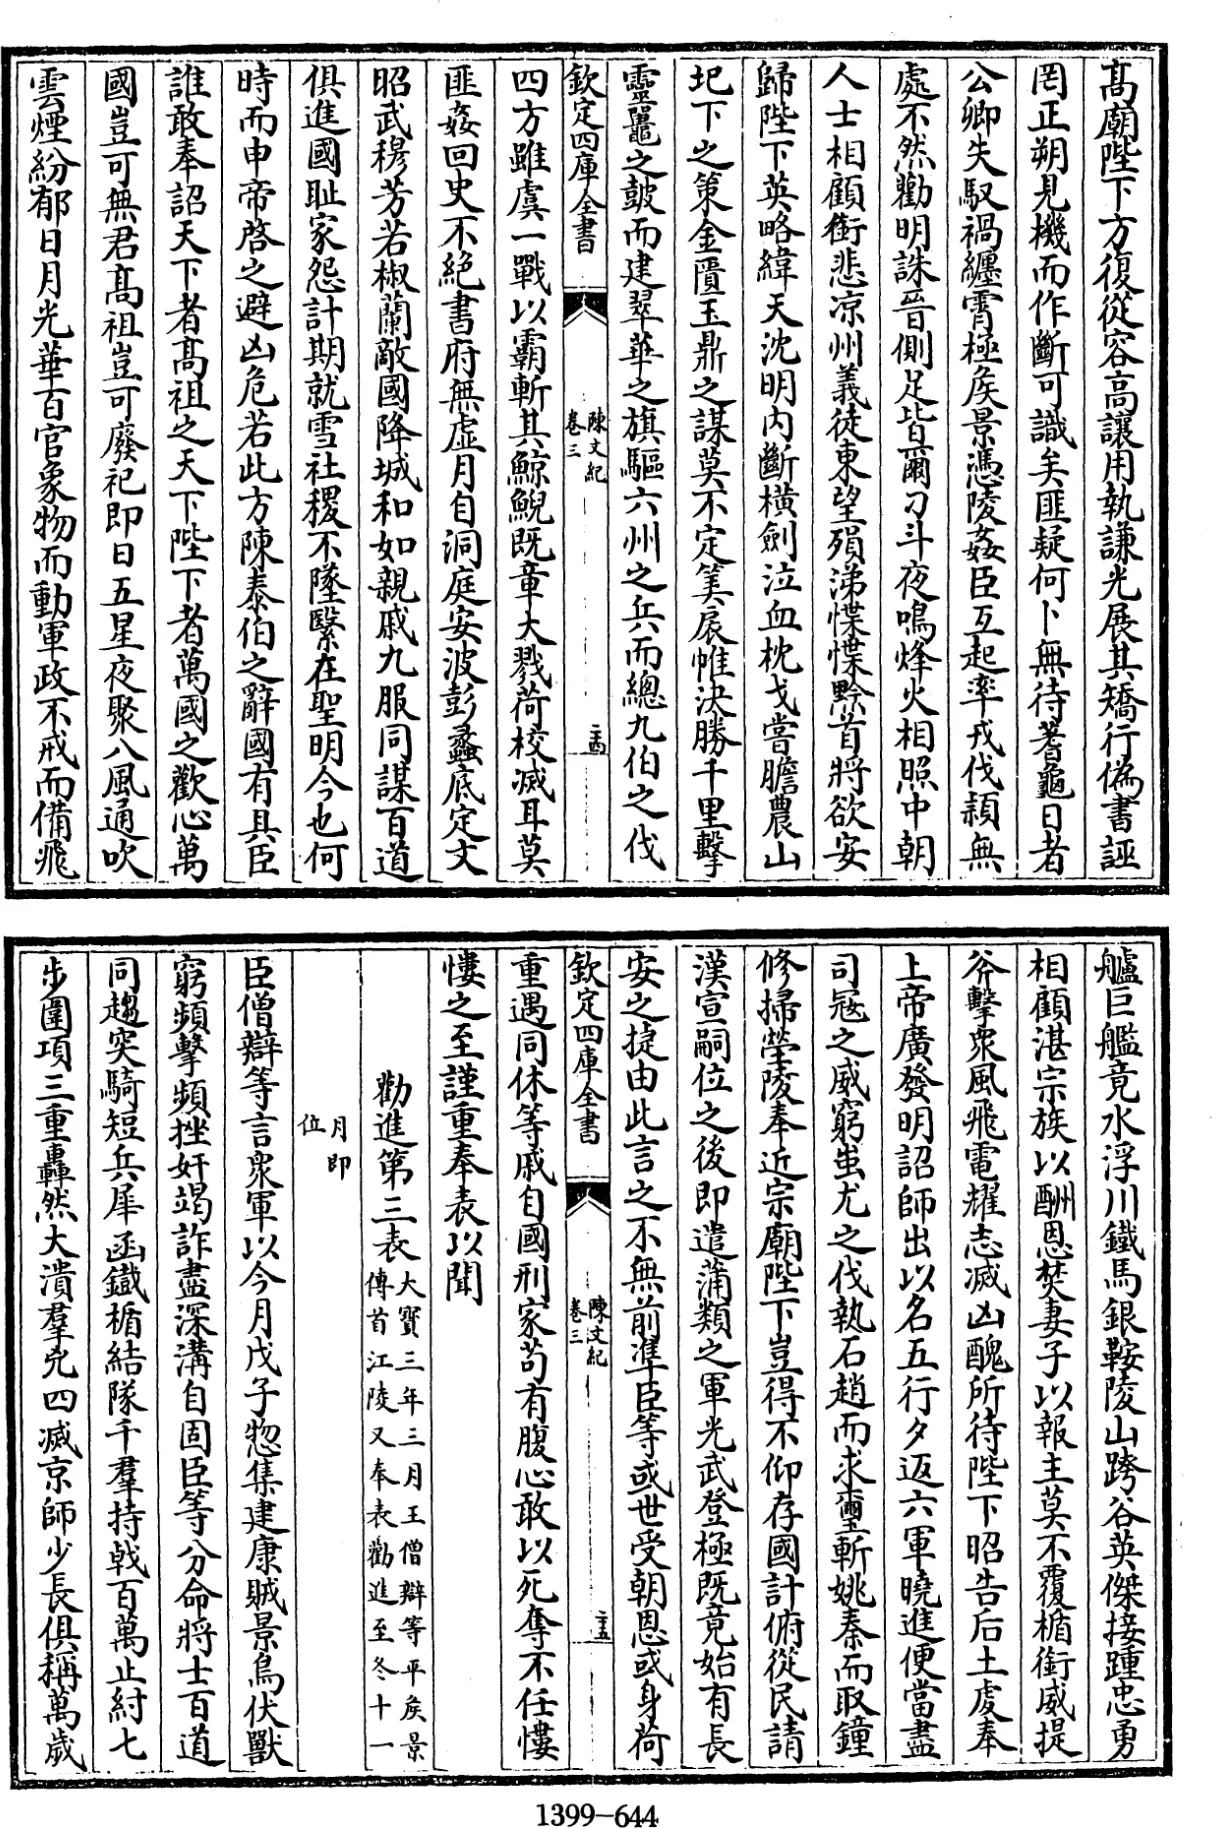 髙廟陛下方復從容高讓用執謙光展其矯行偽書誣
罔正朔見機而作斷可識矣匪疑何卜無待蓍龜日者
公卿失馭禍纏霄極矦景憑陵姦臣互起率戎伐潁無
處不然勸明誅晉側足皆爾刁斗夜鳴烽火相照中朝
人士相顧銜悲凉州義徒東望殞涕惵惵黔首將欲安
歸陛下英略緯天沈明内斷横劍泣血枕戈嘗膽農山
圯下之策金匱玉鼎之謀莫不定筭扆帷決勝千里擊
靈鼉之皷而建翠華之旗驅六州之兵而總九伯之伐
欽定四庫全書
陳文紀
卷三
四方雖虞一戰以霸斬其鯨鯢既章大戮荷校滅耳莫
匪姦回史不絶書府無虚月自洞庭安波彭蠡底定文
昭武穆芳若椒蘭敵國降城和如親戚九服同謀百道
俱進國恥家怨計期就雪社稷不墜繄在聖明今也何
時而申帝啓之避凶危若此方陳泰伯之辭國有具臣
誰敢奉詔天下者髙祖之天下陛下者萬國之歡心萬
國豈可無君髙祖豈可廢祀即日五星夜聚八風通吹
雲煙紛郁日月光華百官象物而動軍政不戒而備飛
艫巨艦竟水浮川鐵馬銀鞍陵山跨谷英傑接踵忠勇
相顧湛宗族以酬恩焚妻子以報主莫不覆楯銜威提
斧擊衆風飛電耀志滅凶醜所待陛下昭告后土虔奉
上帝廣發明詔師出以名五行夕返六軍曉進便當盡
司冦之威窮蚩尤之伐執石趙而求璽斬姚秦而取鐘
修掃塋陵奉近宗廟陛下豈得不仰存國計俯從民請
漢宣嗣位之後即遣蒲類之軍光武登極既竟始有長
安之捷由此言之不無前準臣等或世受朝恩或身荷
欽定四庫全書
陳文紀
卷三
重遇同休等戚自國刑家苟有腹心敢以死奪不任慺
慺之至謹重奉表以聞
勸進第三表大寳三年三月王僧辯等平矦景
傳首江陵又奉表勸進至冬十一
月即
位
臣僧辯等言衆軍以今月戊子惣集建康賊景鳥伏獸
窮頻擊頻挫奸竭詐盡深溝自固臣等分命將士百道
同趨突騎短兵犀函鐵楯結隊千羣持戟百萬止紂七
步圍項三重轟然大潰羣兇四滅京師少長俱稱萬歲
1399-644